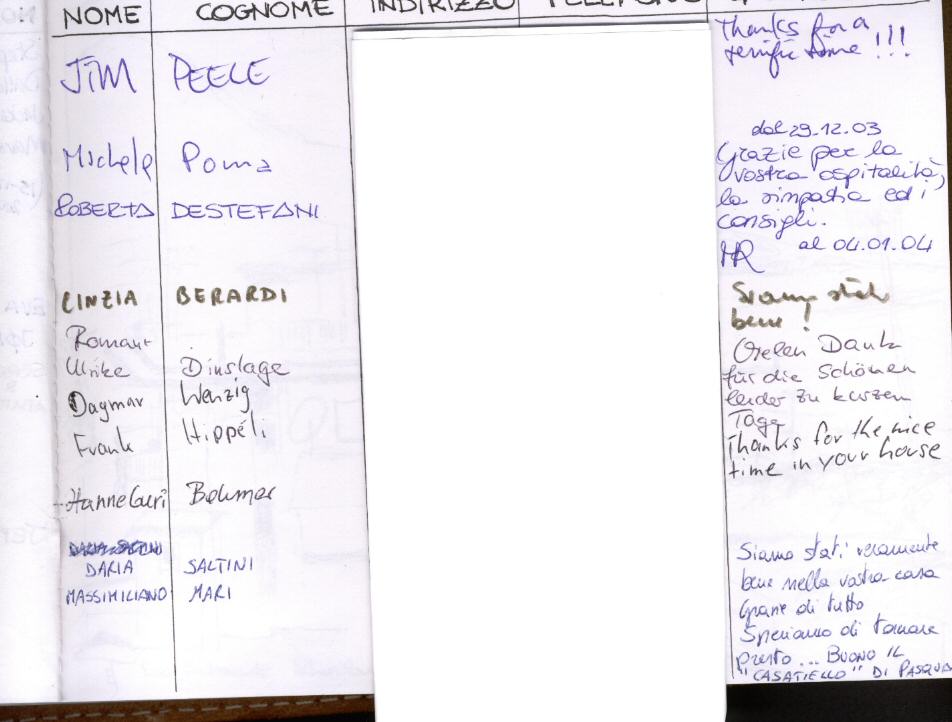 NOME COGNOME INDIRIZZO TELEFONO
JIM PEELE Thanks for a
terrific time !!!
dal 29.12.03
Michele Poma Grazie per la
vostra ospitalità,
ROBERTA DESTEFANI la simpatia ed i
consigli.
MR al 04.01.04
CINZIA BERARDI Siamo stati
bene !
Romant
Ulrike Dinslage Vielen Dank
für die Schönen
Dagmar Wenzig leider zu kurzen
Tage
Frank Hippéli Thanks for the nice
time in your house
Hanne Guri Behmer
DARIA SALTINI Siamo stati veramente
MASSIMILIANO MARI bene nella vostra casa
Grazie di tutto
Speriamo di tornare
presto ... BUONO IL
"CASATIELLO" DI PASQUA